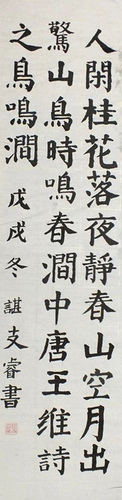 人閑桂花落夜靜春山空月出
驚山鳥時鳴春澗中唐王維詩
之鳥鳴澗 戊戌冬 諶支睿書